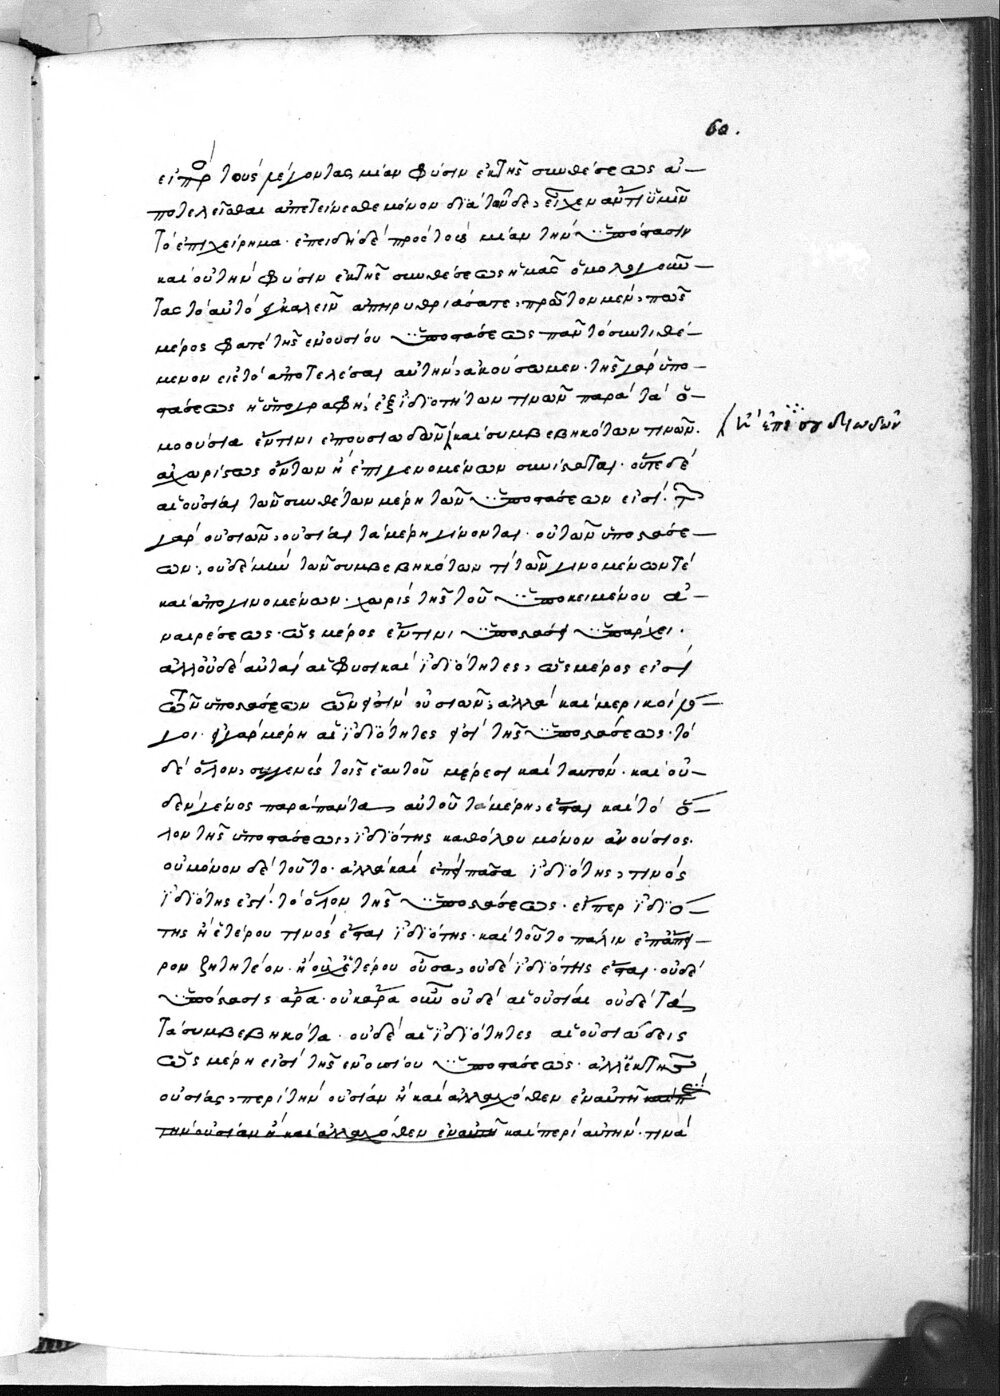 60.
εἰ πρ τοὺς λέγοντας μίαν φύσιν ἐκ τῆς συνθέσεως ἀ-
ποτελεῖσθαι ἀπετείνεσθε μόνον διὰ τῶνδε, εἶχεν ἂν τι ὑμῖν
τὸ ἐπιχείρημα. ἐπειδὴ δὲ πρὸς τοὺς μίαν τὴν ὑπόστασιν
καὶ οὐ τὴν φύσιν ἐκ τῆς συνθέσεως ἡμᾶς ὁμολογοῦν-
τας τὸ αὐτὸ ἐγκαλεῖν ἀπηρυθριάσατε, πρῶτον μὲν, πῶς
μέρος φατὲ τῆς ἐνουσίου ὑποστάσεως πᾶν τὸ συντιθέ-
μενον εἰς τὸ ἀποτελέσαι αὐτὴν, ἀκούσωμεν. τῆς γὰρ ὑπο-
στάσεως ἡ ὑπογραφὴ, ἐξ ἰδιοτήτων τινῶν παρὰ τὰ ὁ-
μοούσια ἔν τινι ἐπουσιωδῶν καὶ συμβεβηκότων τινῶν.
ἀχωρίστως ὄντων ἢ ἐπιγενομένων συνίσταται. οὔτε δὲ
αἱ οὐσίαι τῶν συνθέτων μέρη τῶν ὑποστάσεων εἰσί. τῶν
γὰρ οὐσιῶν, οὐσίαι τὰ μέρη γίνονται. οὐ τῶν ὑποστάσε-
ων, οὐδὲ μὴν τῶν συμβεβηκότων τί τῶν γινομένων τὲ
καὶ ἀπογινομένων. χωρὶς τῆς τοῦ ὑποκειμένου ἀ-
ναιρέσεως. ὡς μέρος ἔν τινι ὑποστάσει ὑπάρχει.
ἀλλ' οὐδὲ αὐταὶ αἱ φυσικαὶ ἰδιότητες, ὡς μέρος εἰσὶ
τῶν ὑποστάσεων
γοι. εἰ γὰρ μέρη αἱ ἰδιότητες εἰσὶ τῆς ὑποστάσεως. τὸ
δὲ ὅλον, συγγενὲς τοῖς ἑαυτοῦ μέρεσι καὶ ταυτόν. καὶ οὐ-
δὲν γένος παρὰ πάντα αὐτοῦ τὰ μέρη, ἔσται καὶ τὸ ὅ-
λον τῆς ὑποστάσεως, ἰδιότης καθόλου μόνον ἀνούσιος.
οὐ μόνον δὲ τοῦτο. ἀλλὰ καὶ ἐπεὶ πᾶσα ἰδιότης, τινὸς
ἰδιότης ἐστὶ. τὸ ὅλον τῆς ὑποστάσεως. εἴπερ ἰδιό-
της ἢ ἑτέρου τινὸς ἔσται ἰδιότης. καὶ τοῦτο πάλιν ἐπ' ἄπει-
ρον ζητητέον. ἢ οὐχ ἑτέρου οὖσα, οὐδὲ ἰδιότης ἔσται. οὐδὲ
ὑπόστασις ἄρα. οὐκ ἄρα οὖν οὐδὲ αἱ οὐσίαι οὐδὲ ταῦ
τὰ συμβεβηκότα. οὐδὲ αἱ ἰδιότητες αἱ οὐσιώδεις
ὡς μέρη εἰσὶ τῆς ἐνουσίου ὑποστάσεως. ἀλλ' ἐκ τῆς
οὐσίας, περὶ τὴν οὐσίαν ἢ καὶ ἀλλαχόθεν ἐν αὐτῇ καὶ π
τὴν οὐσίαν ἢ καὶ ἀλλαχόθεν ἐν αὐτῇ καὶ περὶ αὐτὴν. τινὰ